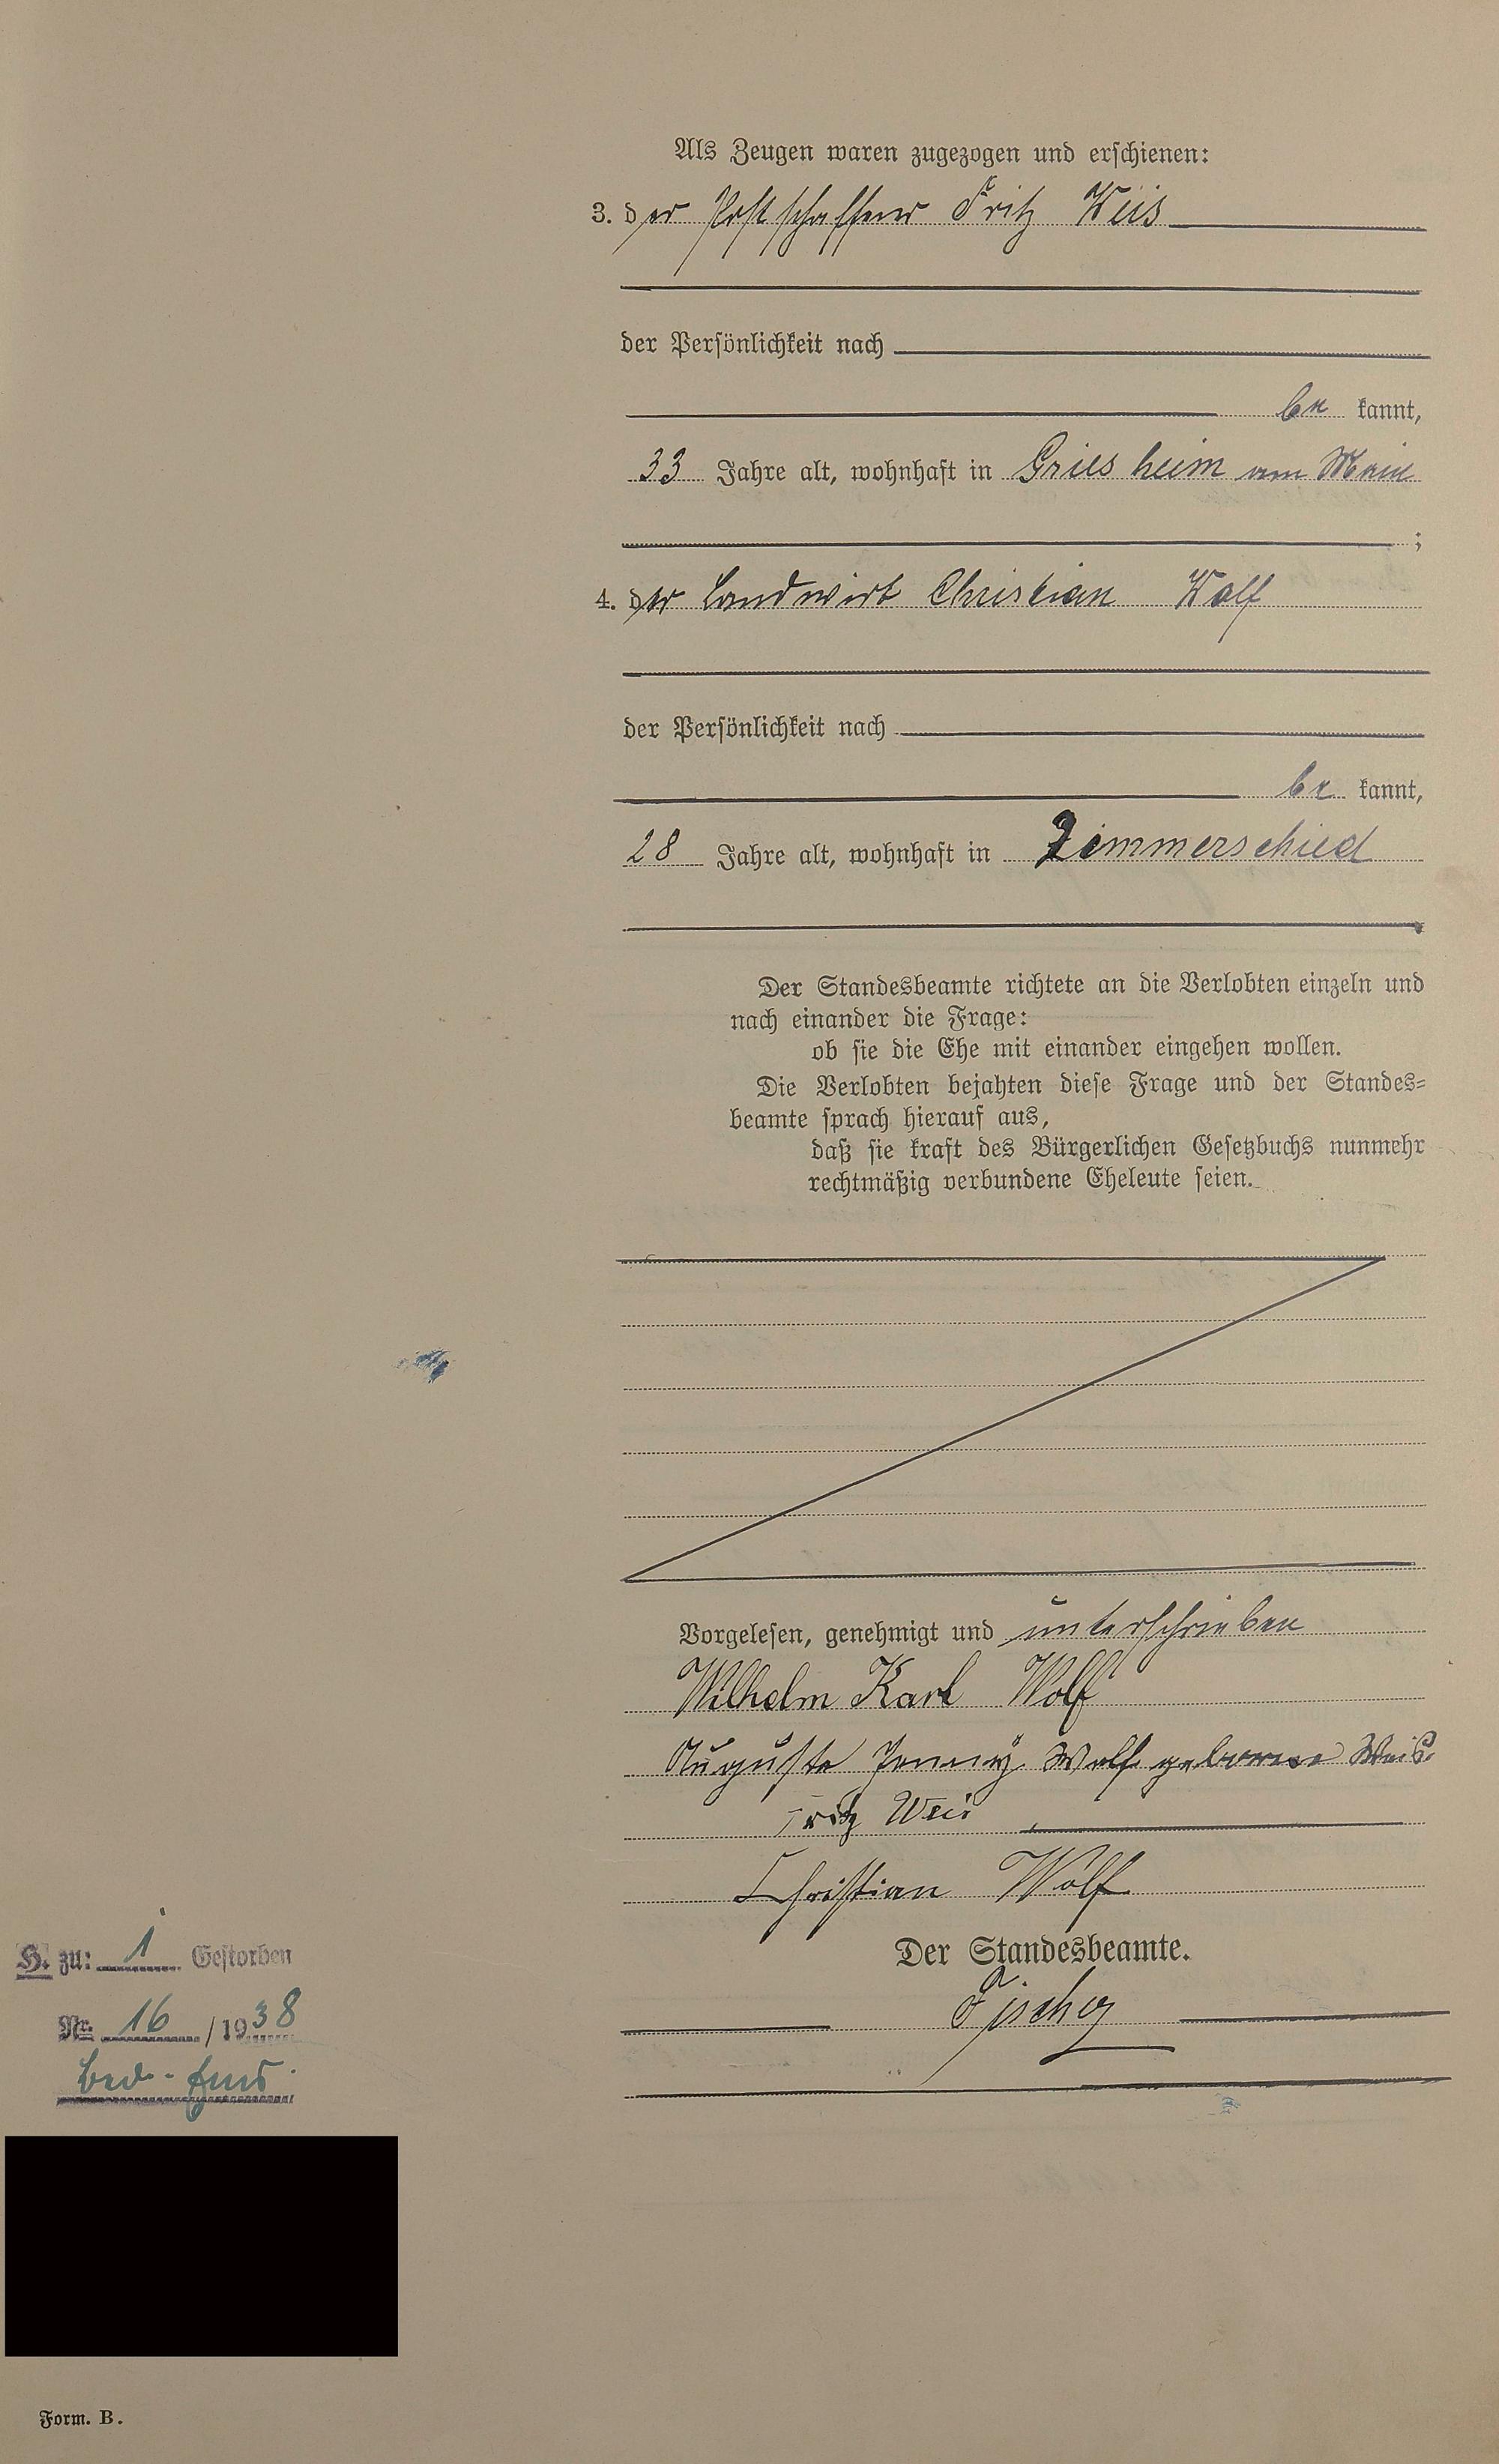 Als Zeugen waren zugezogen und erschienen:
3. der Postschaffner Fritz Weis
der Persönlichkeit nach
be kannt,
33 Jahre alt, wohnhaft in Griesheim am Main
;
4. der Landwirt Christian Wolf
der Persönlichkeit nach
be kannt,
28 Jahre alt, wohnhaft in Zimmerschied
Der Standesbeamte richtete an die Verlobten einzeln und
nach einander die Frage:
ob sie die Ehe mit einander eingehen wollen.
Die Verlobten bejahten diese Frage und der Standes=
beamte sprach hierauf aus,
daß sie kraft des Bürgerlichen Gesetzbuchs nunmehr
rechtmäßig verbundene Eheleute seien.
Vorgelesen, genehmigt und unterschrieben
Wilhelm Karl Wolf
Auguste Jenny Wolf geborene Weis.
Fritz Weis
Christian Wolf
Der Standesbeamte.
H. zu: 1 Gestorben
Nr. 16 / 1938
Bad-Ems
Form. B.